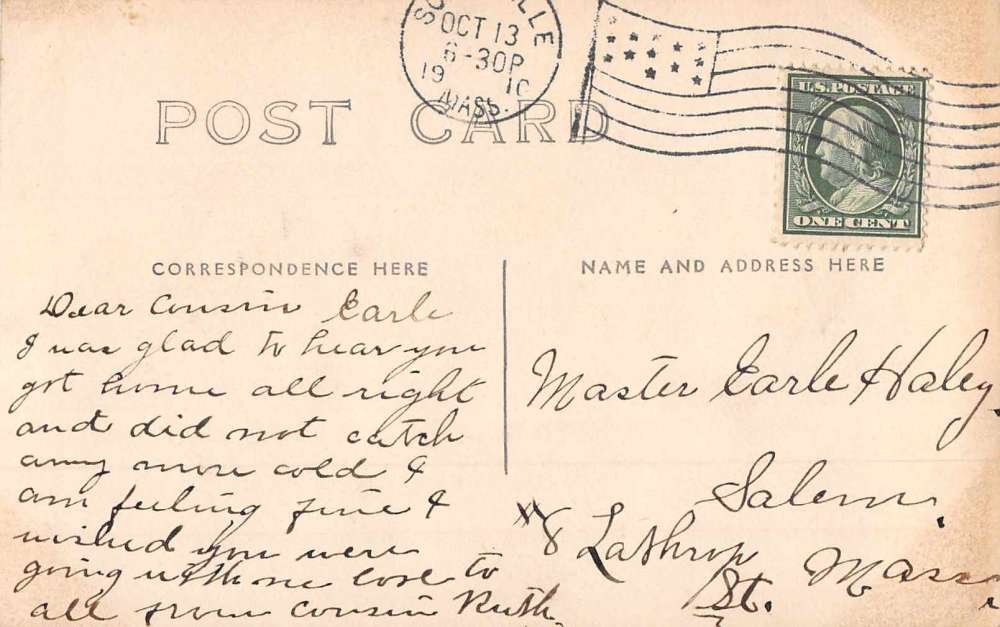 SO VILLE
OCT 13
6-30P
19 10
MASS.
POST CARD
U.S. POSTAGE
ONE CENT
CORRESPONDENCE HERE
NAME AND ADDRESS HERE
Dear Cousin Earle
I was glad to hear you
got home all right
and did not catch
any more cold I
am feeling fine I
wished you were
going with me love to
all from Cousin Ruth.
Master Earle Haley.
Salem,
8 Lathrop
St.
Mass